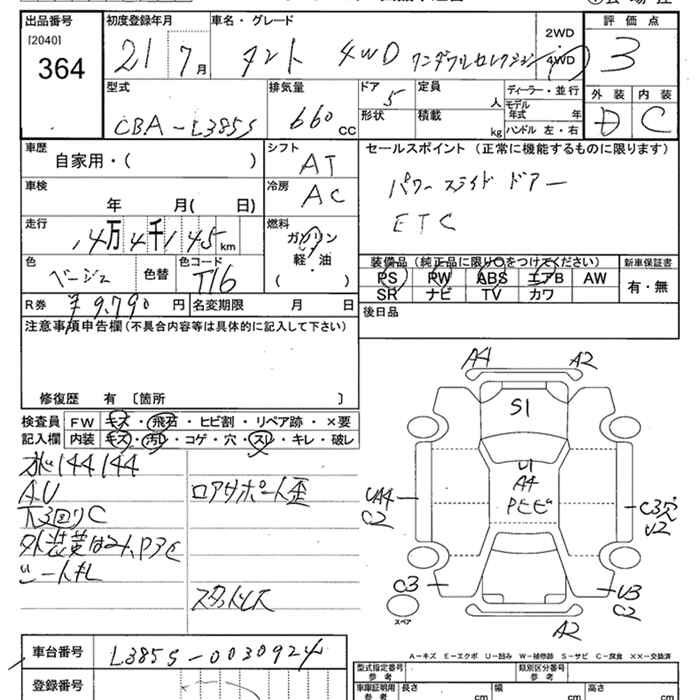 出品番号 初度登録年月 車名・グレード 2WD 評価点
[2040] 21年7月 タント 4WD ワンダフルセレクション 4WD 3
364
型式 排気量 ドア 5 定員 人 ディーラー・並行 外装 内装
CBA-L385S 660 CC 形状 積載 kg モデル年式 年 D C
ハンドル 左・右
車歴 シフト セールスポイント (正常に機能するものに限ります)
自家用・( ) AT
車検 冷房 パワースライドドアー
年 月( 日) AC ETC
走行 燃料
14万4千145km ガソリン
軽・油
( )
色 色替 色コード 装備品 (純正品に限り○をつけてください) 新車保証書
ベージュ T16 PS PW ABS エアB AW 有・無
SR ナビ TV カワ
R券 ¥9,790円 名変期限 月 日 後日品
注意事項申告欄(不具合内容等は具体的に記入して下さい)
修復歴 有 〔箇所 〕
検査員 FW キズ・飛石・ヒビ割・リペア跡・×要
記入欄 内装 キズ・汚レ・コゲ・穴・スレ・キレ・破レ
144144 ロアサポート歪
AU
下3回りC
スタットレス
A4 A2
S1
U1
A4
Pヒビ
UA4
C2
C3穴
U2
C3
U3
C2
スペア
A2
A-キズ E-エクボ U-凹み W-補修跡 S-サビ C-腐食 ××-交換済
車台番号 L385S-0030924 型式指定番号 類別区分番号
参考 参考
登録番号 車庫証明用 長さ cm 幅 cm 高さ cm
参考